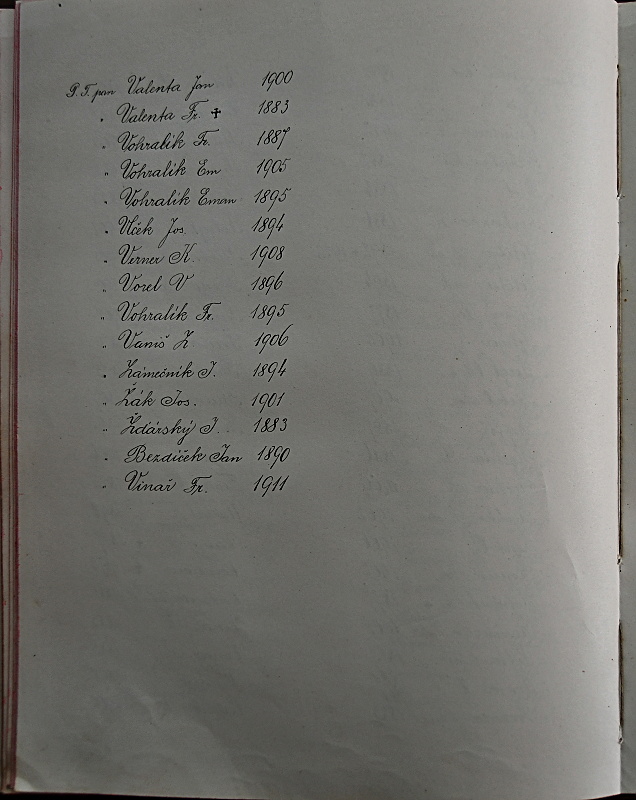 P. T. pan Valenta Jan 1900
" Valenta Fr. ✝ 1883
" Vohralík Fr. 1887
" Vohralík Em 1905
" Vohralík Eman 1895
" Vlček Jos. 1894
" Verner K. 1908
" Vorel V 1896
" Vohralík Fr. 1895
" Vaniš Z. 1906
" Zámečník J. 1894
" Žák Jos. 1901
" Žďárský J. 1883
" Bezdíček Jan 1890
" Vinař Fr. 1911